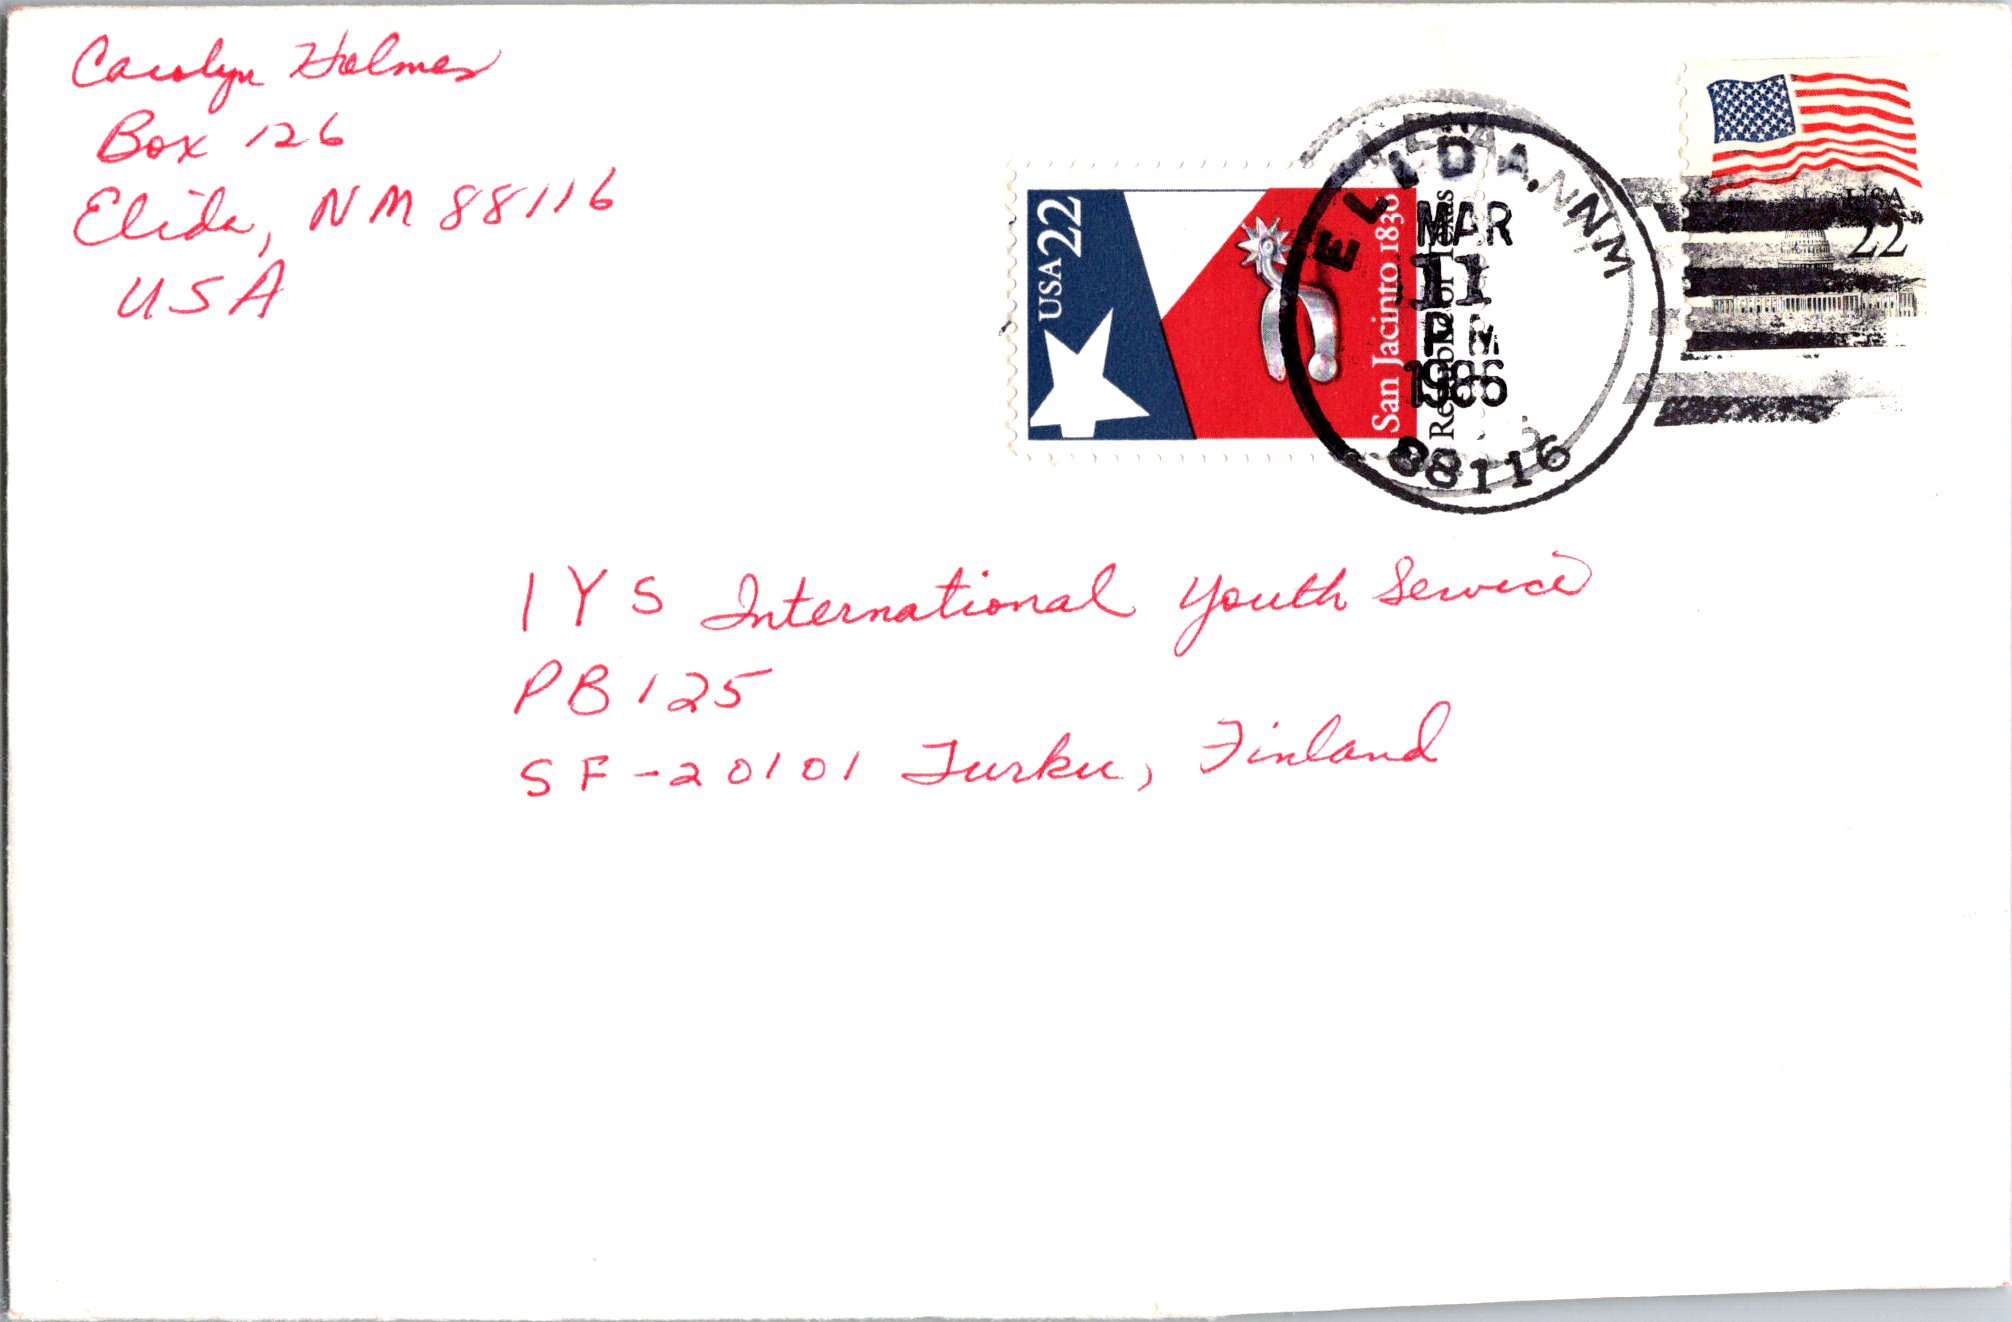 Carolyn Holmes
Box 126
Elida, NM 88116
USA
USA 22
San Jacinto 1836
Republic of Texas
ELIDA. NM
MAR
11
PM
1986
88116
USA
22
IYS International Youth Service
PB 125
SF-20101 Turku, Finland